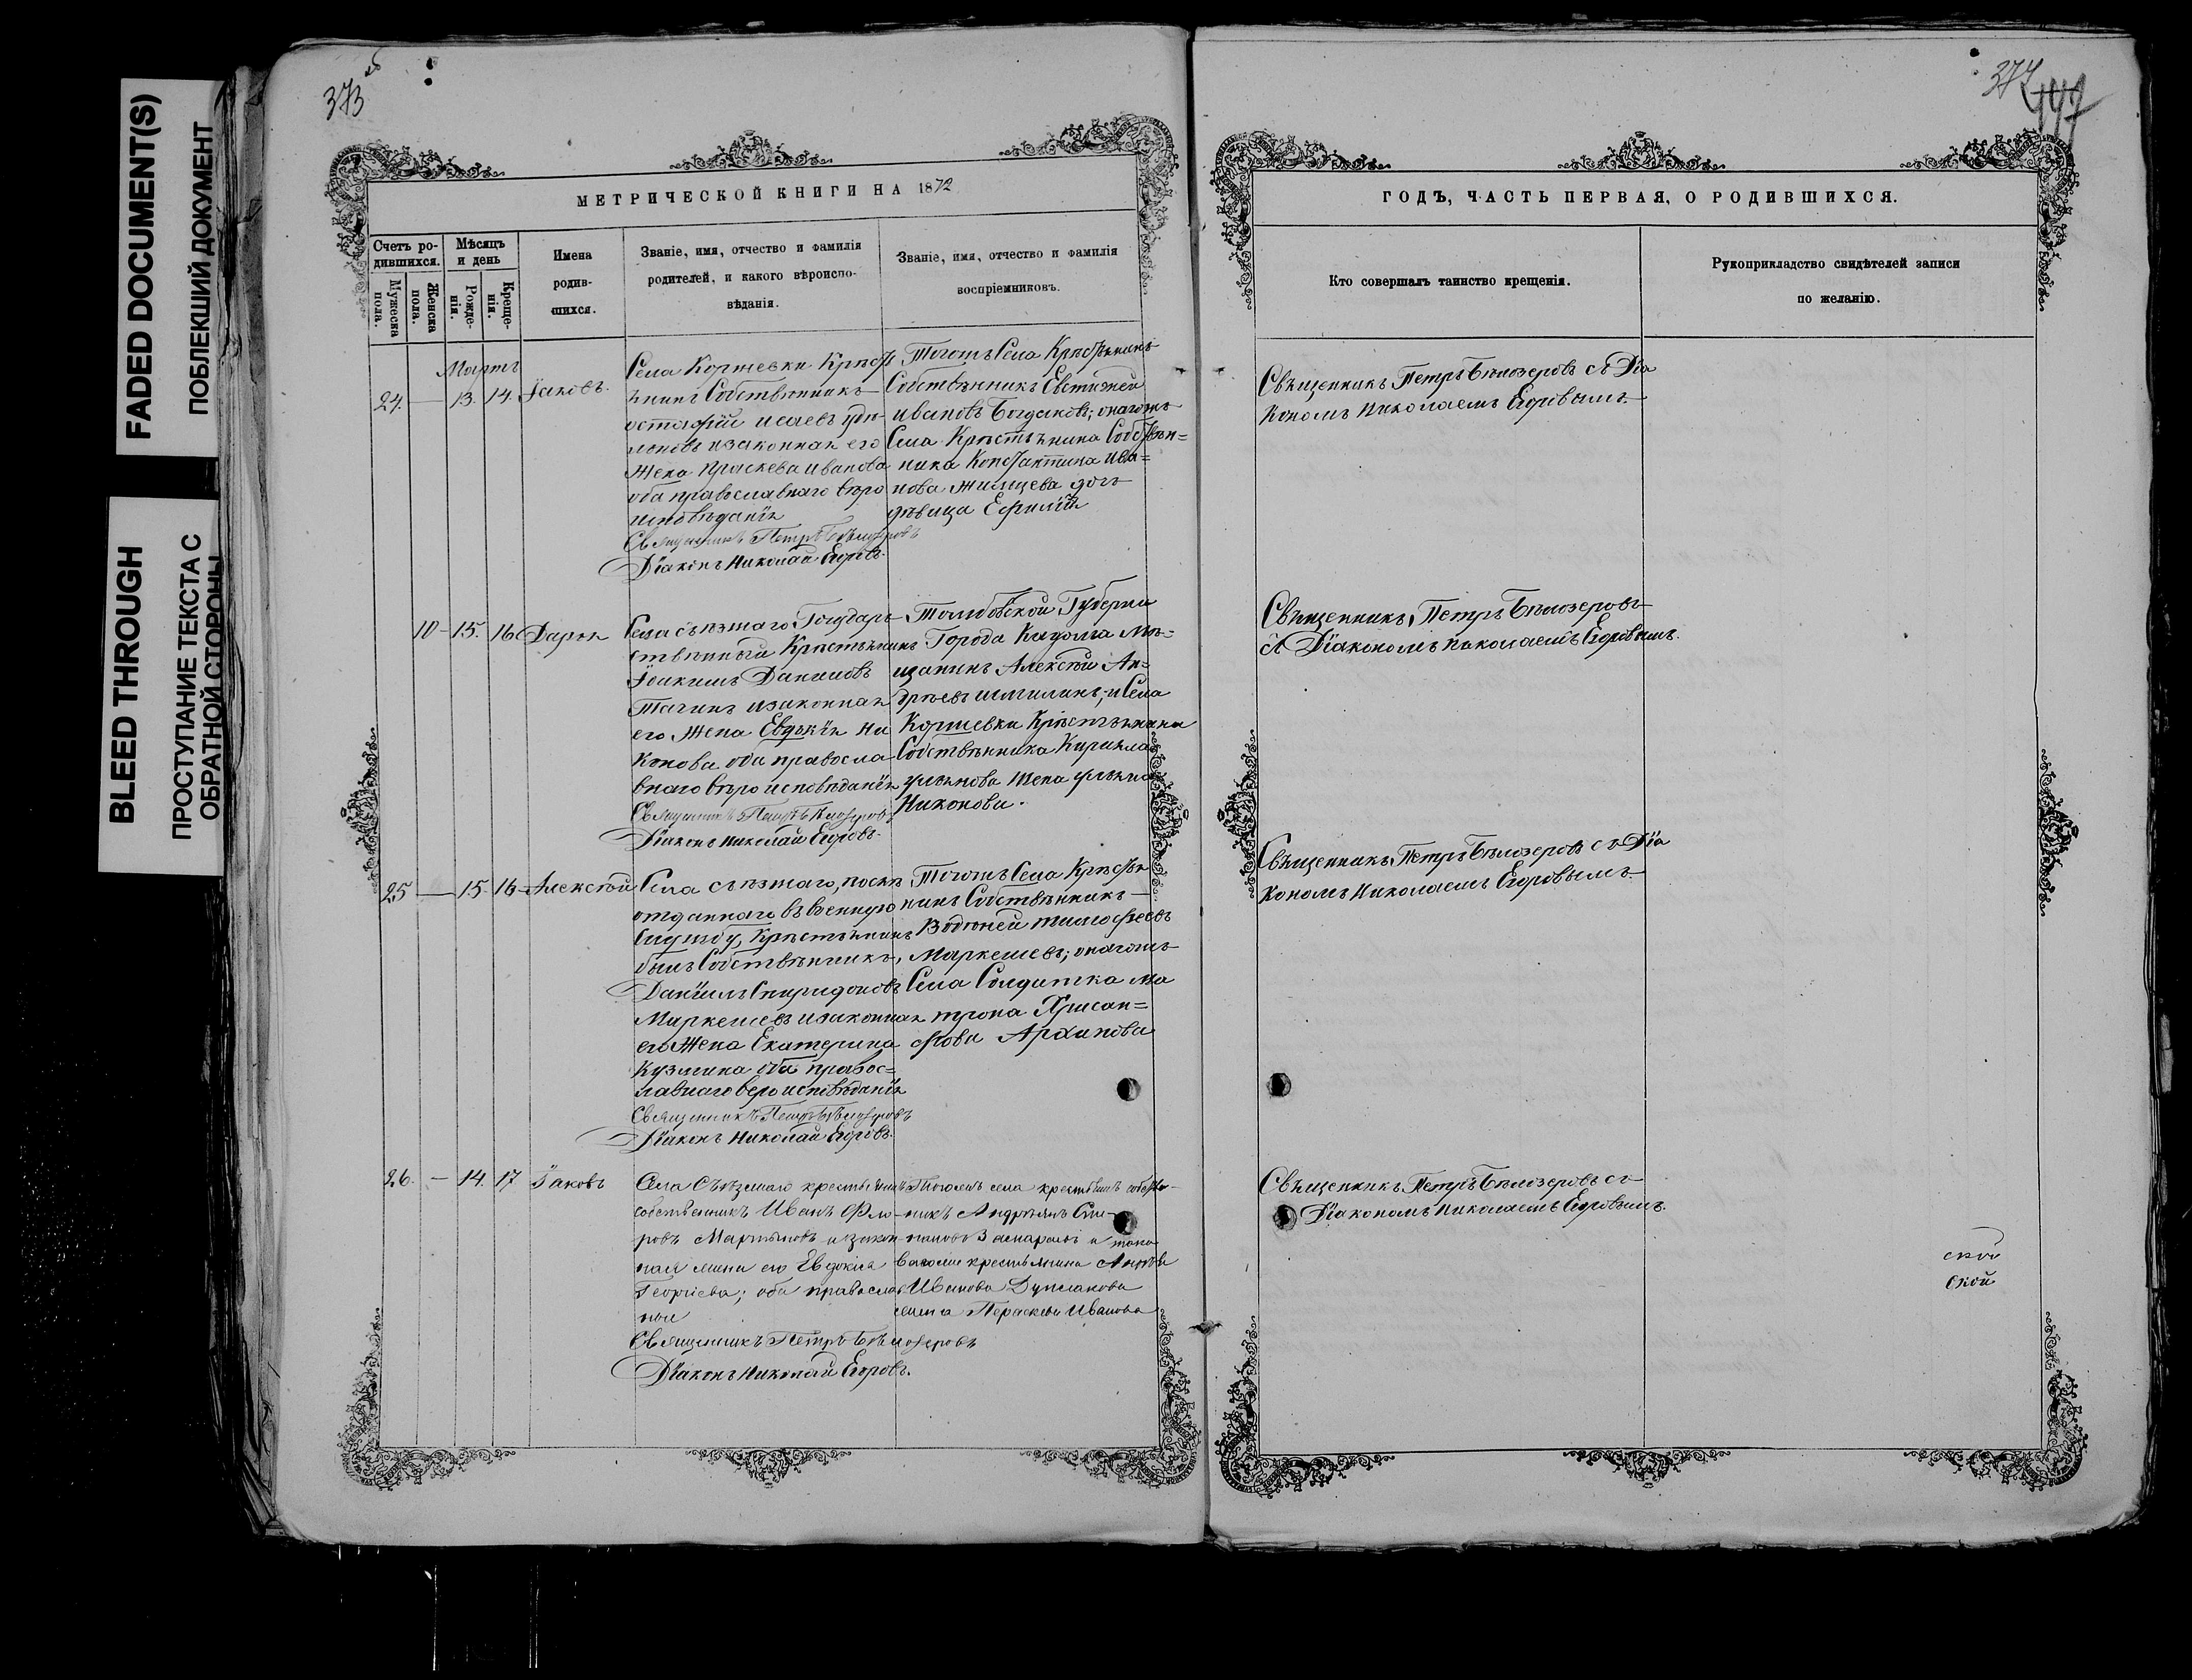 FADED DOCUMENT(S)
ПОБЛЕКШИЙ ДОКУМЕНТ
BLEED THROUGH
ПРОСТУПАНИЕ ТЕКСТА С
ОБРАТНОЙ СТОРОНЫ
373
об
МЕТРИЧЕСКОЙ КНИГИ НА 1872
Счетъ ро-
дившихся.
Мужеска
пола.
Женска
пола.
Мѣсяцъ
и день
Рожде-
нія.
Креще-
нія.
Имена
родив-
шихся.
Званіе, имя, отчество и фамилія
родителей, и какого вѣроиспо-
вѣданія.
Званіе, имя, отчество и фамилія
воспріемниковъ.
Мартъ
24. — 13. 14. Іаковъ.
Села Коржевки Крѣсть
ѣнинъ Собствѣнникъ
остафій исаевъ
изаконная его
Жена праскева иванова
оба православнаго вѣро
исповѣданія
Священникъ Петръ Бѣлозеровъ
Діаконъ Николай Егоровъ.
Тогожъ Села Крѣстьѣнинъ
Собствѣнникъ Евстигней
ивановъ Богдановъ; онагожъ
Села Крѣстьѣнина Собствѣн=
ника Константина ива=
нова Жилщева дочь
дѣвица Ефимія
10 - 15. 16 Дарья
Села съѣзжаго Государ
ствѣнный Крѣстьѣнинъ
Іоакимъ Даниловъ
изаконная
его Жена Евдокія Ни
Конова оба правосла
внаго вѣро исповѣданія
Священникъ Петръ Бѣлозеровъ
Діаконъ Николай Егоровъ.
Тамбовской Губерни
Города Кадома Мѣ=
щанинъ Алексѣй Ан=
дрѣевъ и Села
Коржевки Крѣстьѣнина
Собствѣнника Кирилла
Жена
Никонова.
25 — 15. 16 Алексѣй
Села съѣзжаго, послѣ
отданнаго въ военную
Службу, Крѣстьѣнинъ
былъ Собствѣнникъ,
Даніилъ Спиридоновъ
Маркелевъ изаконная
его Жена Екатерина
Кузмина оба правос=
лавнаго веро исповѣданія
Священникъ Петръ Бѣлозеровъ
Діаконъ Николай Егоровъ.
Тогожъ Села Крѣстьѣ
нинъ Собствѣнникъ
тимофеевъ
Маркелевъ; онагожъ
Села Солдатка Ма
трона Хрисан=
фова Архипова
26. — 14. 17 Іаковъ
Села Съѣзжаго крестьянинъ
собственникъ Иванъ Фло
ровъ Мартыновъ и закон
ная жена его Евдокія
Георгіева; оба православ
ные
Священникъ Петръ Бѣлозеровъ
Діаконъ Николай Егоровъ.
Тогожъ села крестьянинъ собствен
никъ Андреянъ
и
крестьянина
Иванова
жена Пераскева Иванова
377
ГОДЪ, ЧАСТЬ ПЕРВАЯ, О РОДИВШИХСЯ.
Кто совершалъ таинство крещенія.
Рукоприкладство свидѣтелей записи
по желанію.
Свѣщенникъ Петръ Бѣлозеровъ съ Діа
Кономъ Николаемъ Егоровымъ.
Свѣщенникъ Петръ Бѣлозеровъ
съ Діакономъ николаемъ Егоровымъ.
Свѣщенникъ Петръ Бѣлозеровъ съ Діа
Кономъ Николаемъ Егоровымъ.
Свѣщенникъ Петръ Бѣлозеровъ съ
Діакономъ николаемъ Егоровымъ.
ской
ской